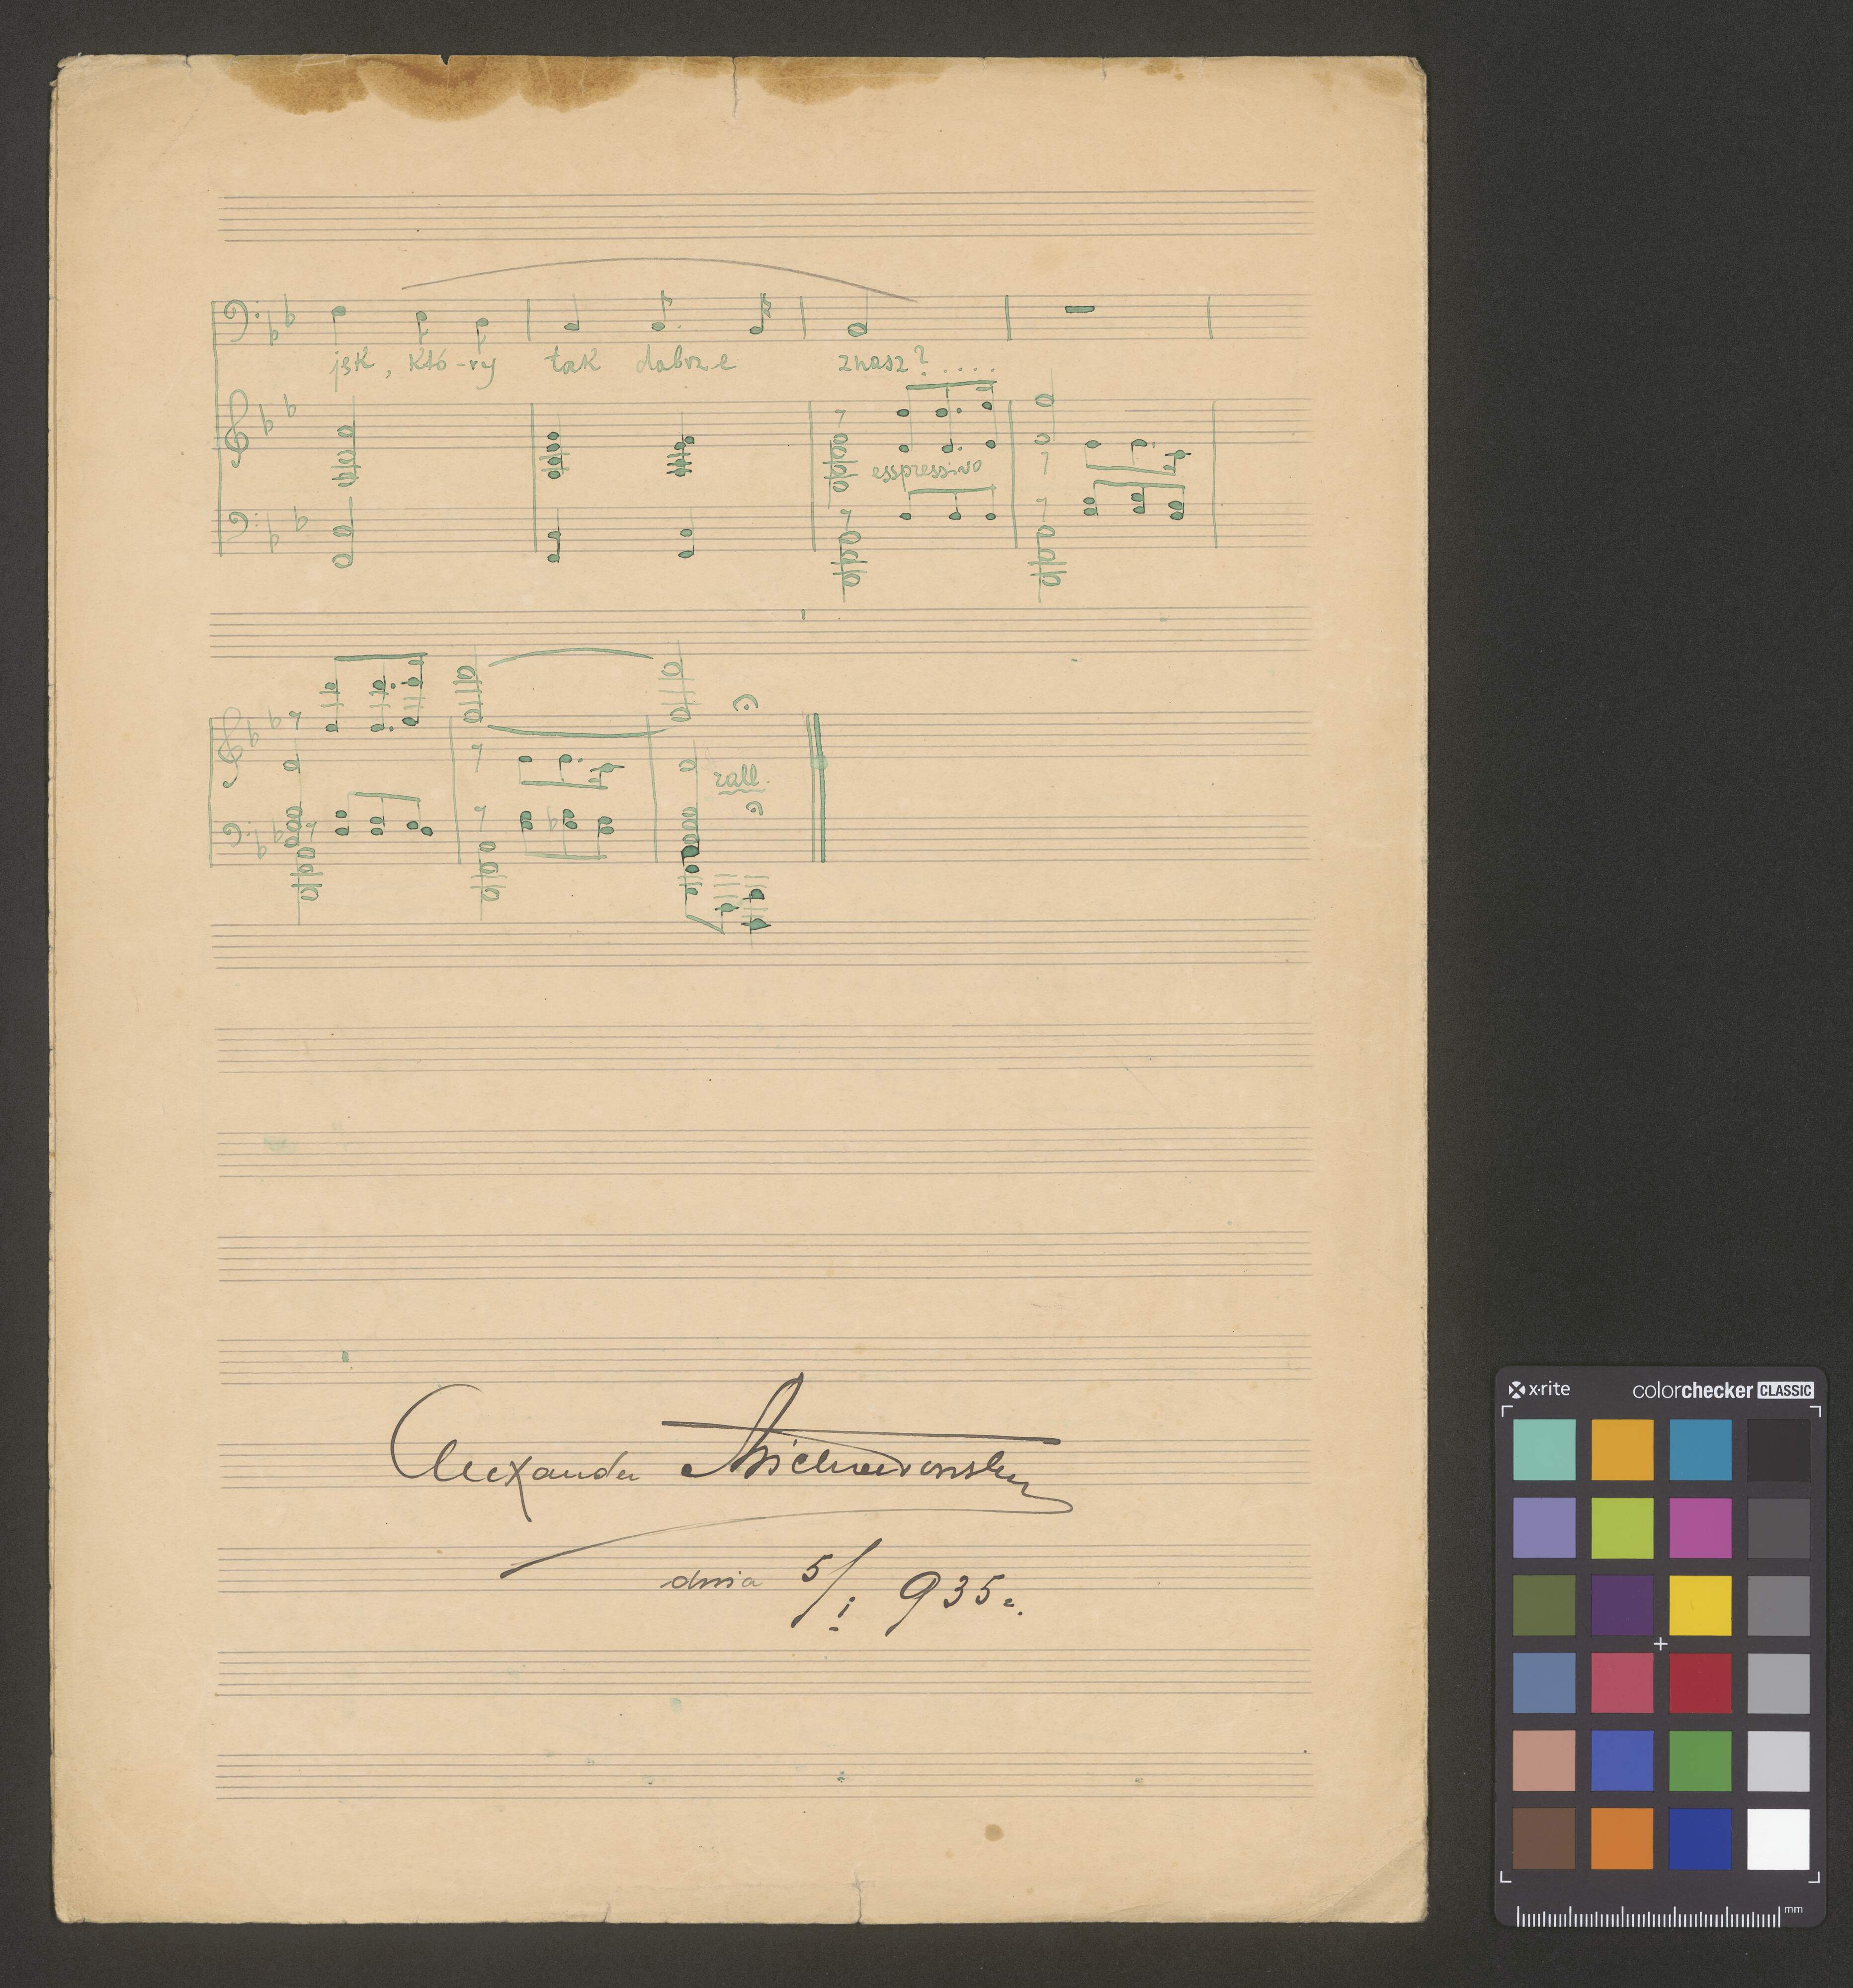 jęk, któ-ry tak dobrze znasz?....
esspressivo
rall.
Alexander
dnia 5/I 935r.
x·rite colorchecker CLASSIC
mm